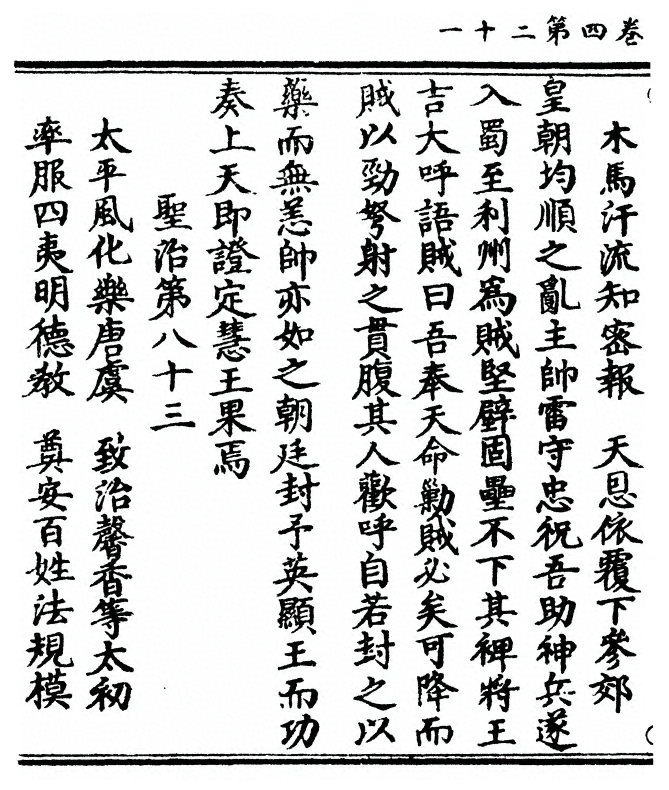 卷四第二十一
木馬汗流知密報　天恩依覆下參郊
皇朝均順之亂主帥雷守忠祝吾助神兵遂
入蜀至利州爲賊堅壁固壘不下其裨將王
吉大呼語賊曰吾奉天命勦賊必矣可降而
賊以勁弩射之貫腹其人歡呼自若封之以
藥而無恙帥亦如之朝廷封予英顯王而功
奏上天即證定慧王果焉
聖治第八十三
太平風化樂唐虞　致治馨香等太初
率服四夷明德教　奠安百姓法規模